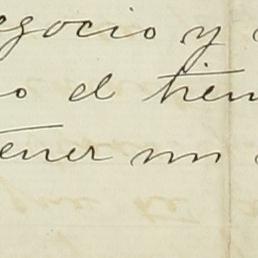 negocio y
o el tiem
tener un